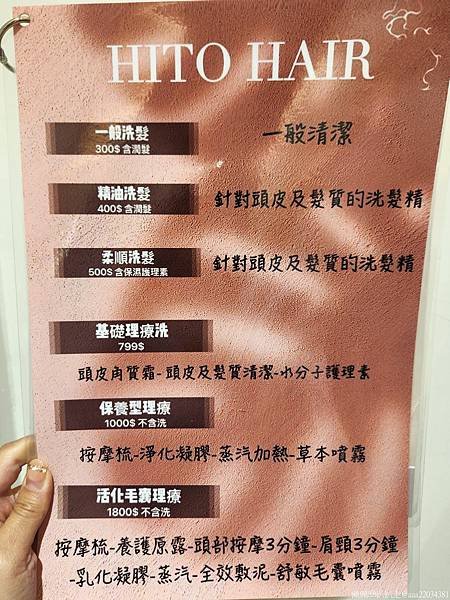 HITO HAIR
一般洗髮
300$ 含潤髮
一般清潔
精油洗髮
400$ 含潤髮
針對頭皮及髮質的洗髮精
柔順洗髮
500$ 含保濕護理素
針對頭皮及髮質的洗髮精
基礎理療洗
799$
頭皮角質霜-頭皮及髮質清潔-水分子護理素
保養型理療
1000$ 不含洗
按摩梳-淨化凝膠-蒸汽加熱-草本噴霧
活化毛囊理療
1800$ 不含洗
按摩梳-養護原露-頭部按摩3分鐘-肩頸3分鐘
-乳化凝膠-蒸汽-全效敷泥-舒敏毛囊噴霧